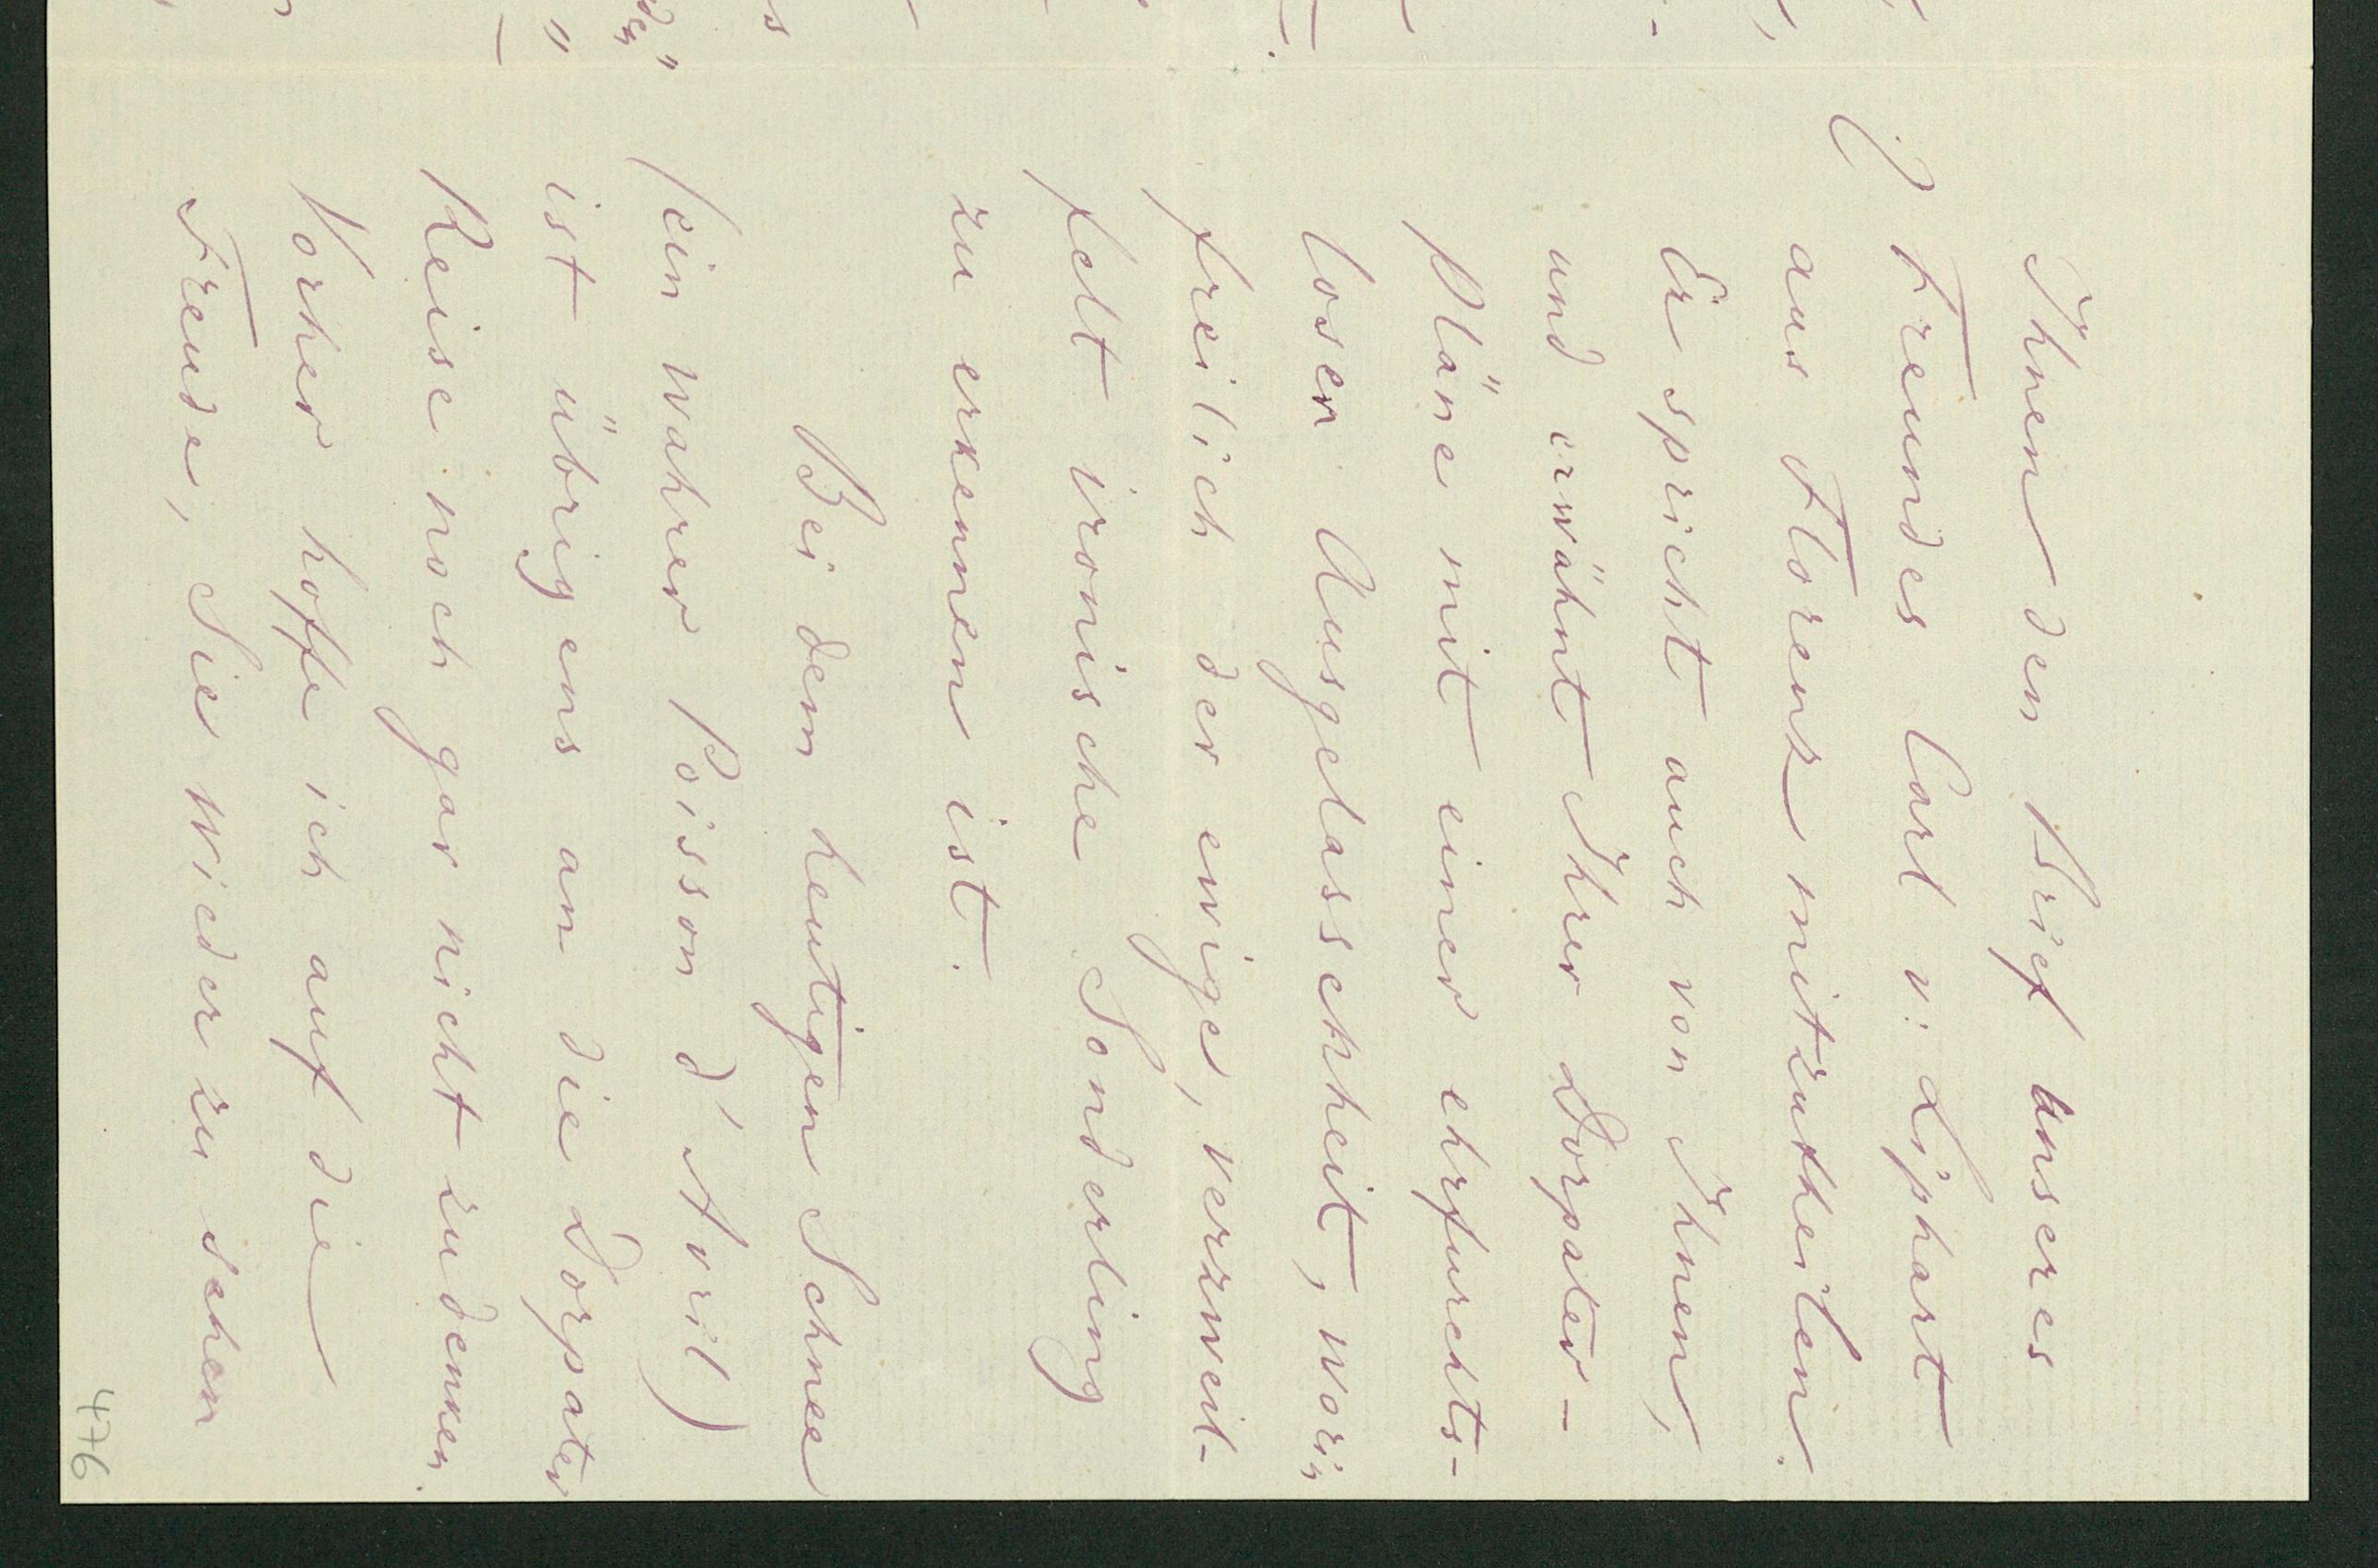 Ihnen den Brief unseres
Freundes Carl v: Liphart
aus Florenz mitzutheilen.
Er spricht auch von Ihnen,
und erwähnt Ihrer Dorpater-
Pläne mit einer ehrfurchts-
losen Ausgelassenheit, worin
freilich der ewige, verzweif-
felt ironische Sonderling
zu erkennen ist.
Bei dem heutigen Schnee
(ein wahrer Poisson d'Avril)
ist übrigens an die Dorpater
Reise noch gar nicht zu denken.
Vorher hoffe ich auf die
Freude, Sie wieder zu sehen
476